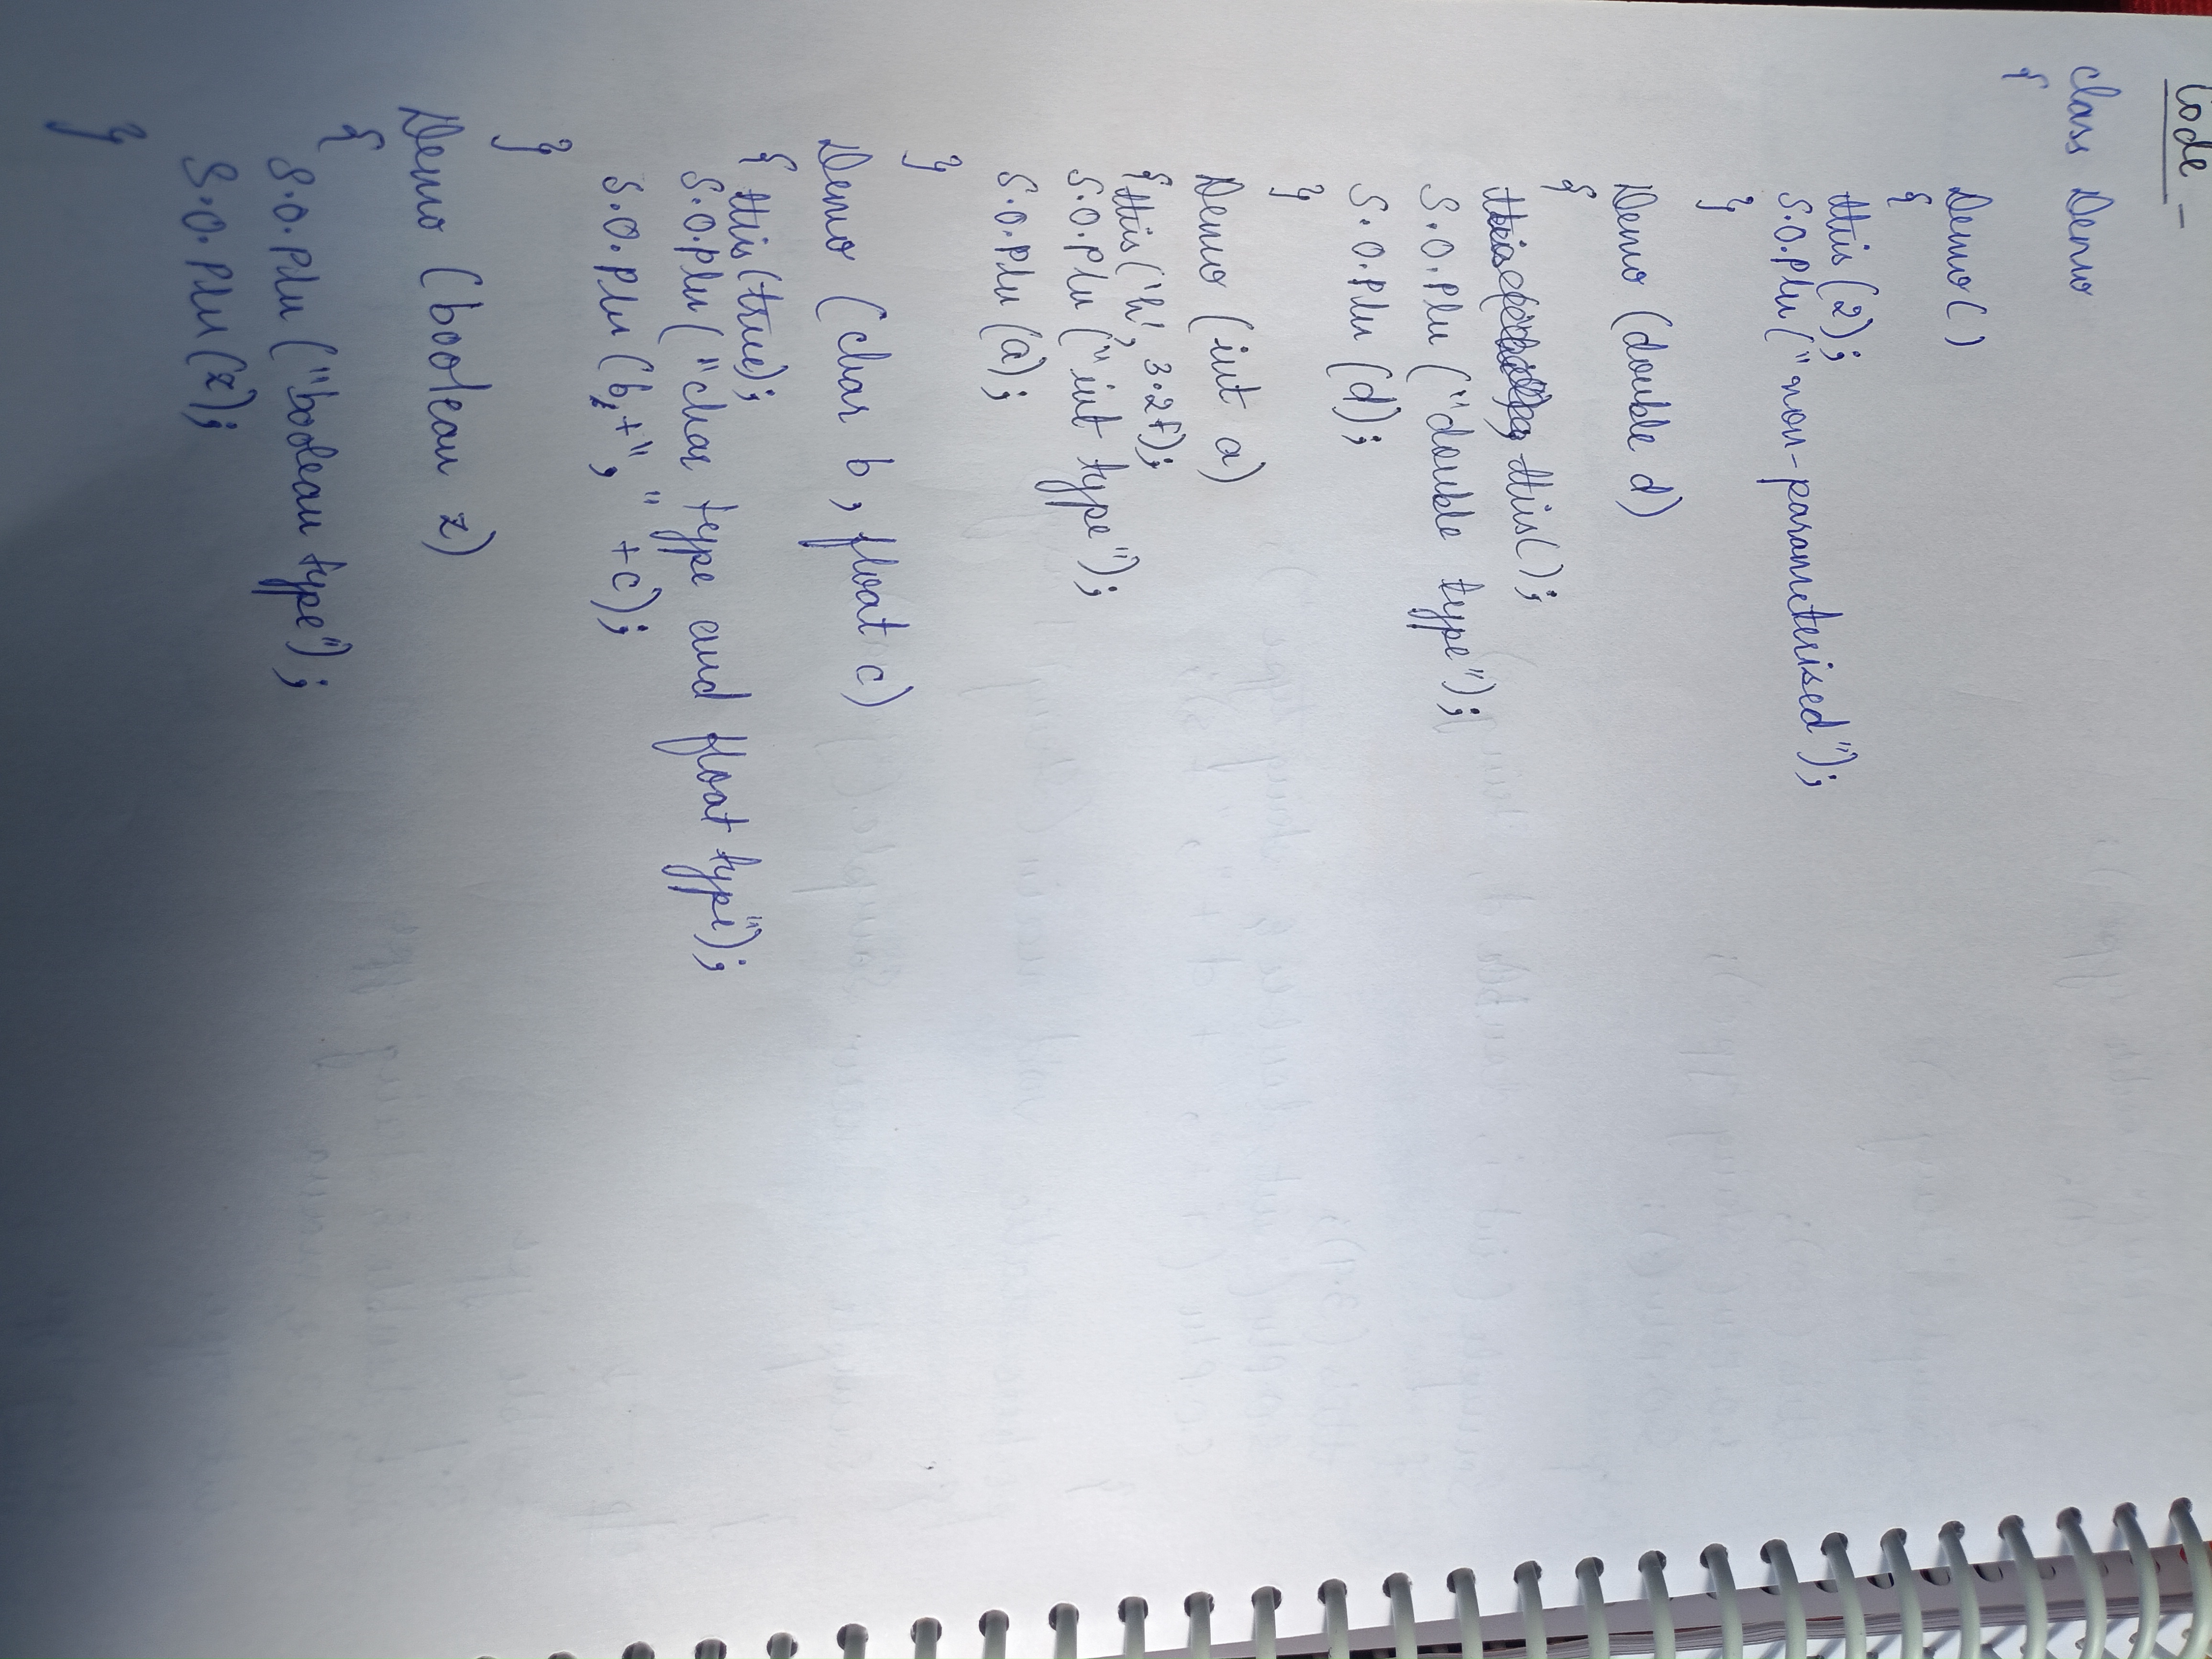 Code -
class Demo
{
Demo()
{
this(2);
S.O.Pln("non-parameterised");
}
Demo (double d)
{
this();
S.O.Pln ("double type");
S.O.Pln (d);
}
Demo (int a)
{this('h', 3.2f);
S.O.Pln ("int type");
S.O.Pln (a);
}
Demo (char b, float c)
{ this(true);
S.O.Pln ("char type and float type");
S.O.Pln (b,+"," +c);
}
Demo (boolean z)
{
S.O.Pln ("boolean type");
S.O.Pln (z);
}